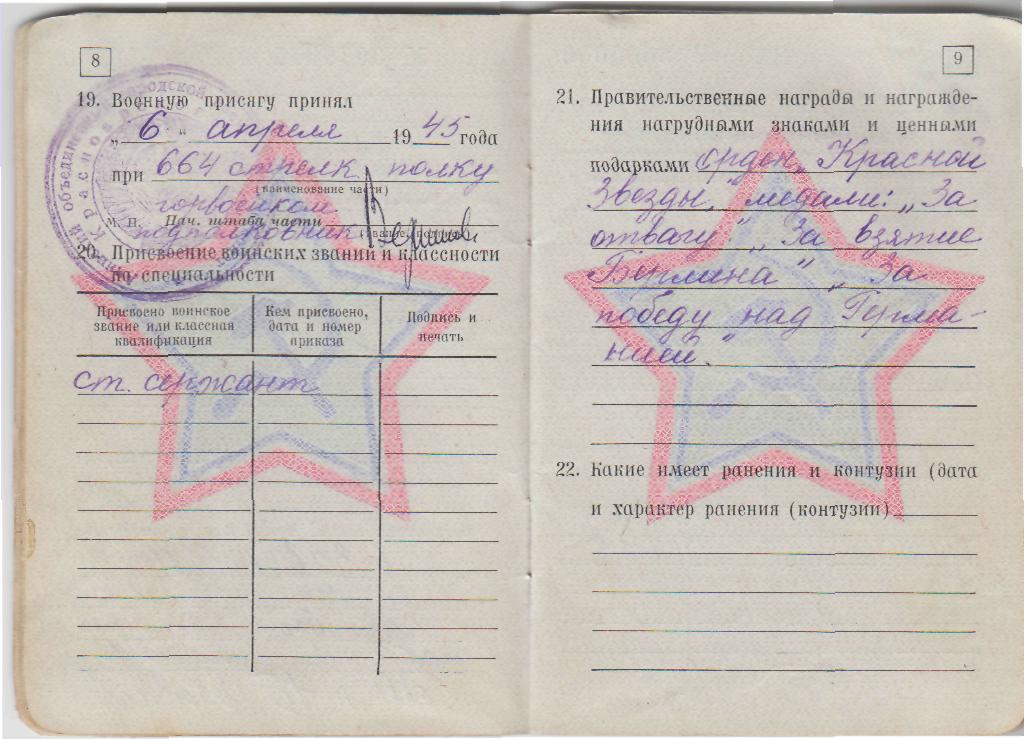 8
19. Военную присягу принял
„ 6 “ апреля 1945 года
при 664 стрелк полку
(наименование части)
горвоенком
М. П. Нач. штаба части
подполковник
20. Присвоение воинских званий и классности
по специальности
Присвоено воинское звание или классная квалификация
Кем присвоено, дата и номер приказа
Подпись и печать
ст. сержант
9
21. Правительственные награды и награжде-
ния нагрудными знаками и ценными
подарками орден „Красной
Звезды,“ медали: „За
отвагу“ „За взятие
Берлина“ „За
победу над Герма-
нией.“
22. Какие имеет ранения и контузии (дата
и характер ранения (контузии)